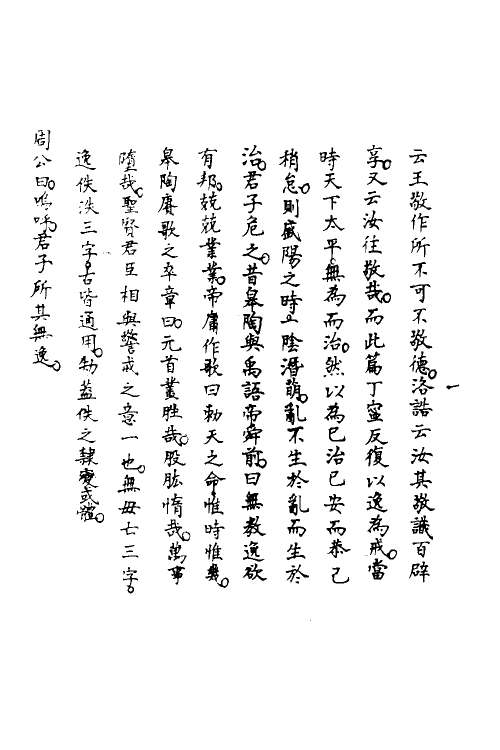 云王敬作所不可不敬德。洛誥云汝其敬識百辟
享。又云汝往敬哉。而此篇丁寧反復以逸為戒。當
時天下太平。無為而治。然以為已治已安而恭己
稍怠。則盛陽之時。陰潛萌。亂不生於亂而生於
治。君子危之。昔皋陶與禹語帝舜前。曰無教逸欲
有邦。兢兢業業。帝庸作歌曰勑天之命。惟時惟幾。
皋陶賡歌之卒章曰。元首叢脞哉。股肱惰哉。萬事
墮哉。聖賢君臣相與警戒之意一也。無毋亡三字。
逸佚泆三字。古皆通用。劮蓋佚之隸變或體。
周公曰。嗚呼。君子所其無逸。